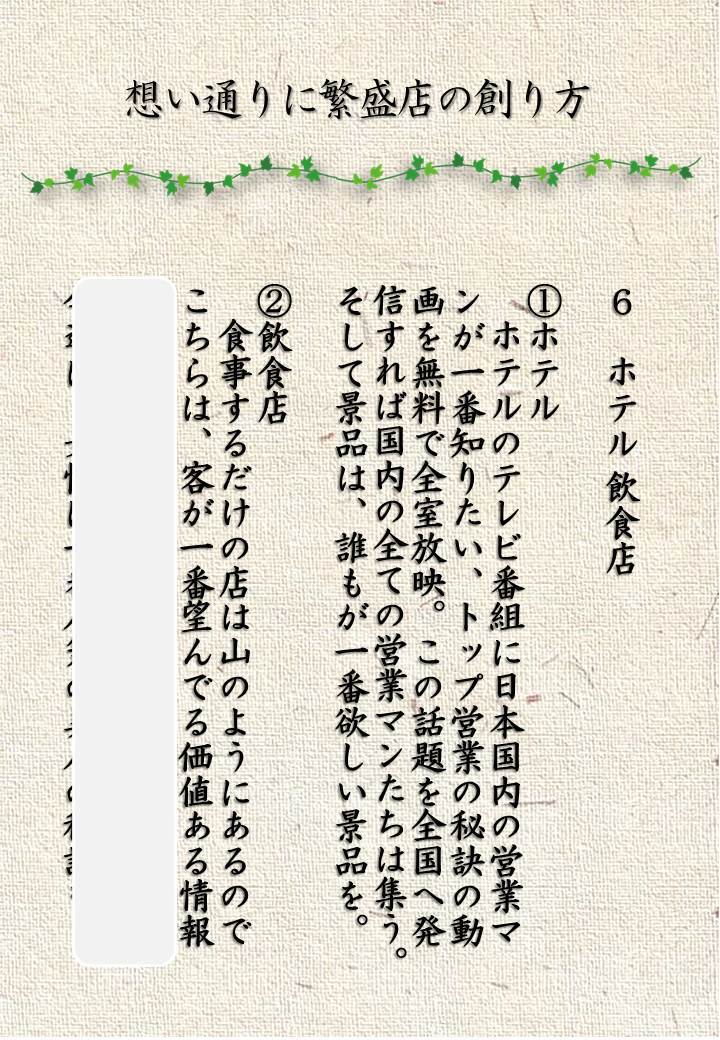 想い通りに繁盛店の創り方
6 ホテル 飲食店
①ホテル
ホテルのテレビ番組に日本国内の営業マ
ンが一番知りたい、トップ営業の秘訣の動
画を無料で全室放映。この話題を全国へ発
信すれば国内の全ての営業マンたちは集う。
そして景品は、誰もが一番欲しい景品を。
②飲食店
食事するだけの店は山のようにあるので
こちらは、客が一番望んでる価値ある情報